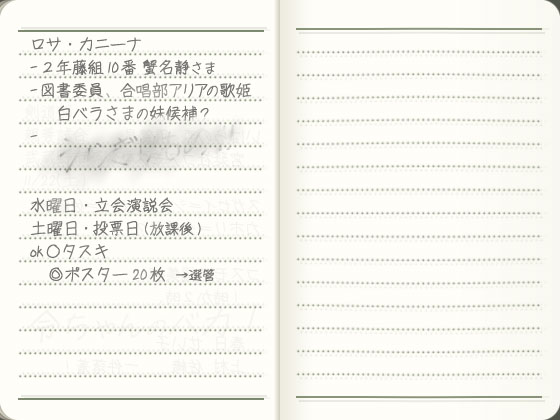 ロサ・カニーナ
- 2年藤組10番 蟹名静さま
- 図書委員、合唱部アリアの歌姫
白バラさまの妹候補？
-
水曜日・立会演説会
土曜日・投票日(放課後)
ok○タスキ
◎ポスター 20枚 →選管